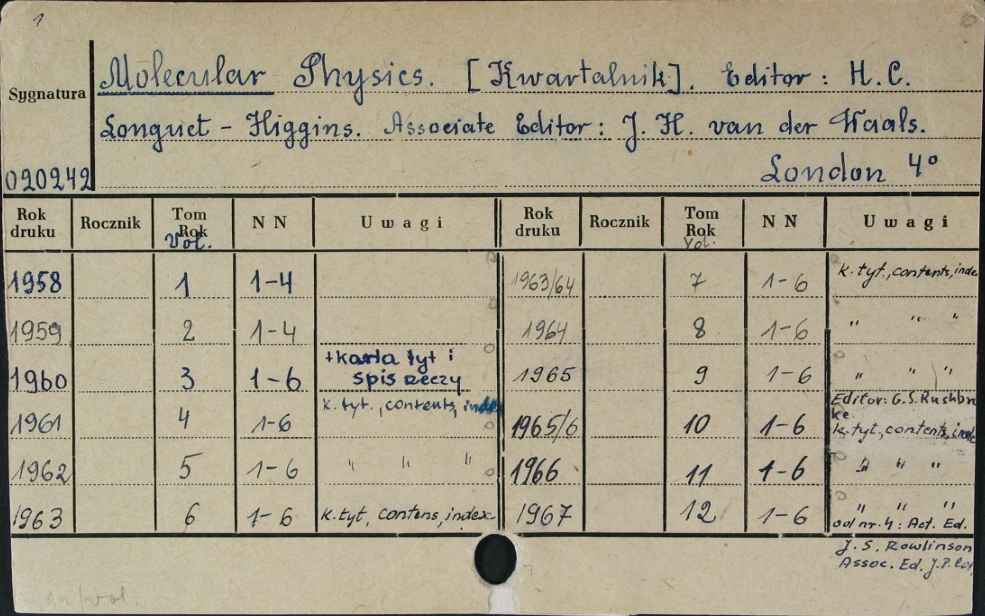 1
Sygnatura
Molecular Physics. [Kwartalnik]. Editor: H.C.
Longuet-Higgins. Associate Editor: J. H. van der Waals.
020242 London 4°
Rok druku Rocznik Tom Rok Vol. NN Uwagi Rok druku Rocznik Tom Rok Vol. NN Uwagi
1958 1 1-4 1963/64 7 1-6 k. tyt., contents, inde
1959 2 1-4 1964 8 1-6 " " "
1960 3 1-6 +karta tyt i spis rzeczy 1965 9 1-6 " " "
1961 4 1-6 k. tyt., contents, index 1965/6 10 1-6 Editor: G.S. Rushbro ke k. tyt, contents, inde
1962 5 1-6 " " " 1966 11 1-6 " " "
1963 6 1-6 k. tyt, contens, index 1967 12 1-6 " " "
od nr. 4: Act. Ed.
J. S. Rowlinson
Assoc. Ed. J.P.